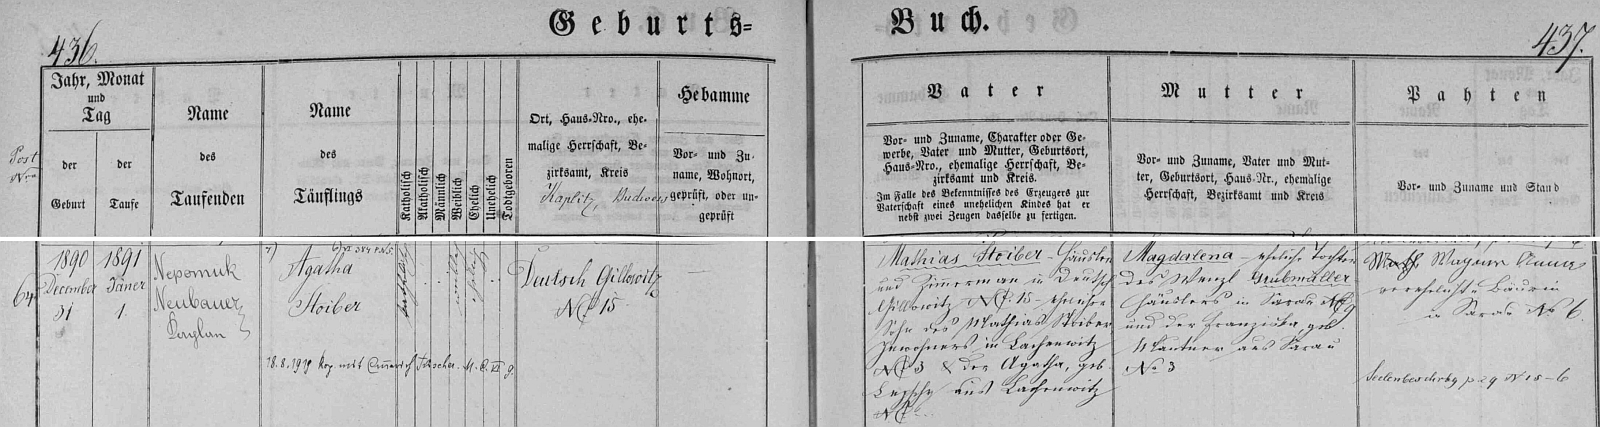 Geburts=
Buch.
436.
437.
Post
Nro
Jahr, Monat
und
Tag
der
Geburt
der
Taufe
Name
des
Taufenden
Name
des
Täuflings
Katholisch
Akatholisch
Männlich
Weiblich
Ehelich
Unehelich
Todtgeboren
Ort, Haus-Nro., ehe-
malige Herrschaft, Be-
zirksamt, Kreis
Kaplitz, Budweis
Hebamme
Vor- und Zu-
name, Wohnort,
geprüft, oder un-
geprüft
Vater
Vor- und Zuname, Charakter oder Ge-
werbe, Vater und Mutter, Geburtsort,
Haus-Nro., ehemalige Herrschaft, Be-
zirksamt und Kreis.
Im Falle des Bekenntnisses des Erzeugers zur
Vaterschaft eines unehelichen Kindes hat er
nebst zwei Zeugen dasselbe zu fertigen.
Mutter
Vor- und Zuname, Vater und Mut-
ter, Geburtsort, Haus-Nr., ehemalige
Herrschaft, Bezirksamt und Kreis
Pahten
Vor- und Zuname und Stand
64
1890
December
31
1891
Jäner
1.
Nepomuk
Neubauer
Kaplan
Agatha
Stoiber
18.8.1919 kop. mit Fischer
katholisch
weiblich
ehelich
Deutsch Gillowitz
No 15
Mathias Stoiber Häusler
und Zimerman in Deutsch
Gillowitz No 15 – eheliche
Sohn des Mathias Stoiber
Inwohners in Lachenwitz
No 3 & der Agatha, geb.
aus Lachenwitz
No
Magdalena – eheliche Tochter
des Wenzl Grubmüller
Häuslers in Sarau No 9
und der Franziska, geb.
Mautner aus Sarau
No 3
Wagner Anna
verehelichte Bäurin
in Sarau No 6.
Seelenbeschrbg pag No 15–6